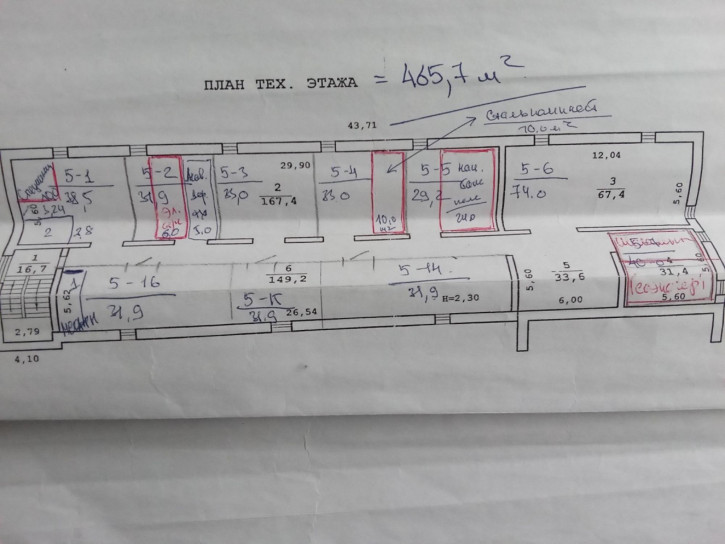 ПЛАН ТЕХ. ЭТАЖА = 465,7 м²
43,71
10,0 м²
5-1
38,5
5-2
31,9
5-3
33,0
29,90
2
167,4
5-4
33,0
10,0
м²
5-5
29,2
24,0
5-6
74.0
12,04
3
67,4
5,60
3,24
5,60
2
2,8
6,0
5,0
1
16,7
2,79
4,10
5,62
1
5-16
31,9
6
149,2
5-15
31,9
26,54
5-14
31,9
H=2,30
5,60
5
33,6
6,00
4
31,4
5,60
5,60